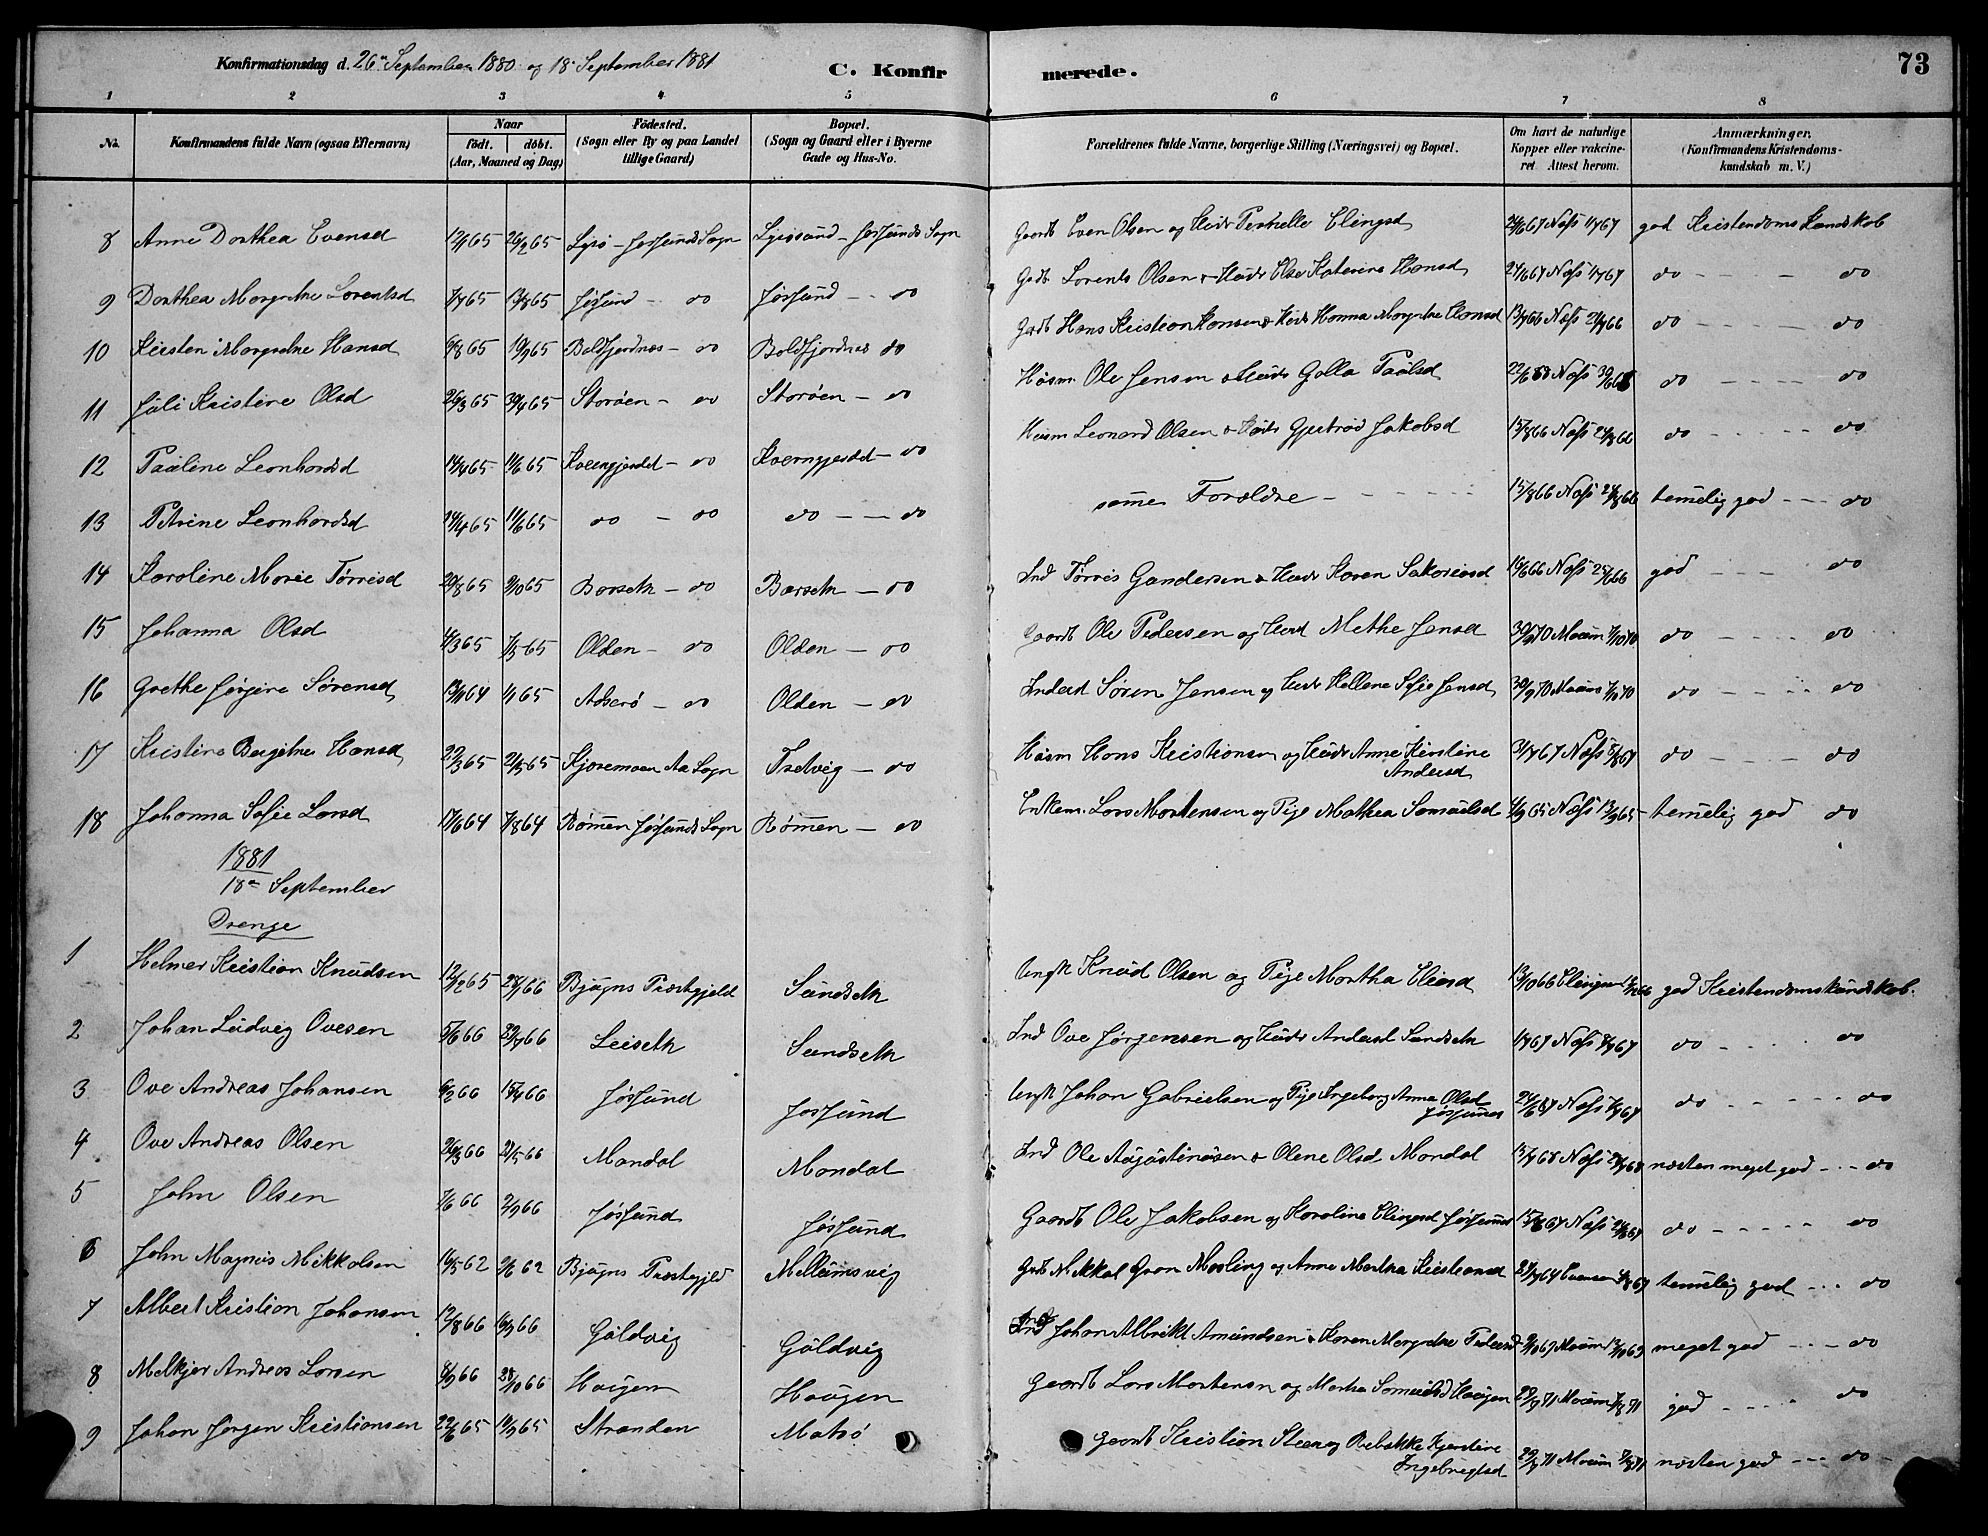 Konfirmationsdag d. 26de September 1880 og 18 September 1881
C. Konfirmerede.
73
1 2 3 4 5 6 7 8
No. Konfirmandens fulde Navn (ogsaa Efternavn) Naar födt. döbt. (Aar, Maaned og Dag) Födested. (Sogn eller By og paa Landet tillige Gaard) Bopæl. (Sogn og Gaard eller i Byerne Gade og Hus-No. Forældrenes fulde Navne, borgerlige Stilling (Næringsvei) og Bopæl. Om havt de naturlige Kopper eller vakcineret Attest herom. Anmærkninger. (Konfirmandens Kristendomskundskab m. V.)
8 Anne Dorthea Evensd 12/1 65 26/2 65 Lysø - Jøssunds Sogn Lysøsund - Jøssunds Sogn Gaardb Even Olsen og Hustr Pernille Elingsd 24/6 67 Næss 1/7 67 god Kristendoms Kundskab
9 Dorthea Margrethe Lorentsd 7/7 65 13/8 65 Jøssund - do Jøssund - do Gdb Lorents Olsen & Hustr Else Katerina Hansd 24/6 67 Næss 1/7 67 do - - - do
10 Kirsten Margrethe Hansd 9/8 65 19/9 65 Botsfjordnes - do Botsfjordnes do Gdb Hans Kristian Hansen & Hustr Hanna Margrethe Hansd 13/7 66 Næss 21/7 66 do - - - do
11 Juli Kristine Olsd 26/3 65 30/4 65 Storøen - do Storøen - do Husm Ole Jensen & Hustr Golla Paalsd 22/6 Næss do - - - do
12 Pauline Leonhardsd 14/4 65 11/6 65 Kverngjerdet - do Kverngjerdet - do Husm Leonard Olsen & Hustr Gjertrud Jakobsd 15/8 66 Næss 21/8 66 do - - - do
13 Petrine Leonhardsd 14/4 65 11/6 65 do - do do - - do samme Forældre - - - 15/8 66 Næss 21/8 66 temelig god - - do
14 Karoline Marie Tørrisd 20/8 65 9/10 65 Barseth - do Barseth - do Ind Tørris Gundersen & Hustr Karen Sakariasd 19/6 66 Næss 25/6 66 god - - - do
15 Johanna Olsd 4/3 65 7/5 65 Olden - do Olden - do Gaardb Ole Pedersen og Hustr Methe Jensd 30/9 70 Moum 7/10 70 do - - - do
16 Grethe Jørgine Sørensd 13/11 64 1/1 65 Adserø - do Olden - do Inderst Søren Jensen og Hustr Hellene Sofie Jensd 30/9 70 Moum 7/10 70 do - - - do
17 Kristine Bergithe Hansd 22/3 65 21/5 65 Kjosemoen Aa Sogn Tedvig - do Husm Hans Kristiansen og Hustr Anne Kirstine Andersd 31/7 67 Næss 8/8 67 do - - - do
18 Johanna Sofie Larsd 17/6 64 7/8 64 Rømmen Jøssunds Sogn Rømmen - do Enkem. Lars Mortensen og Pige Mathea Samuelsd 4/9 65 Næss 13/9 65 temelig god do
1881
18de September
Drenge
1 Helmer Kristian Knudsen 12/2 65 28/1 66 Bjugns Præstegjeld Sundseth Ungk Knud Olsen og Pige Martha Eliasd 13/10 66 god Kristendomskundskab.
2 Johan Ludvig Ovesen 5/6 66 29/7 66 Leiseth Sundseth Ind Ove Jørgensen og Hustr Sundseth 1/7 67 Næss 8/7 67 do - - - do
3 Ove Andreas Johansen 6/2 66 15/4 66 Jøssund Jøssund Ungk Johan Gabrielsen og Pige Ingeborg Anna Olsd Jøssund 24/6 67 Næss 1/7 67 do - - - do
4 Ove Andreas Olsen 26/3 66 21/5 66 Mandal Mandal Ind Ole Augustinusen & Olene Olsd Mandal 13/7 68 Næss 21/7 68 næsten meget god - - do
5 John Olsen 7/6 66 2/9 66 Jøssund Jøssund Gaardb Ole Jakobsen og Karoline Elingsd Jøssund Næss do - - - do
6 John Magnus Mikkalsen 16/5 62 9/6 62 Bjugns Præstegjeld Mellumsvig Gdb Mikkal Grøn Mosling og Anne Martha Kristiansd temelig god - - do
7 Albert Kristian Johansen 12/8 66 16/9 66 Guldvig Guldvig Ind Johan Albrikt Amundsen & Karen Margrethe Pedersd Moum meget god - - do
8 Melkjer Andreas Larsen 8/9 66 28/10 66 Haugen Haugen Gaardb Lars Mortensen og Martha Samuelsd Haugen Moum god - - - do
9 Johan Jørgen Kristiansen 22/6 65 10/9 65 Stranden Matsø Gaardb Kristian Steen og Rebekke Kjerstine Ingebrigtsd Moum næsten god - - do